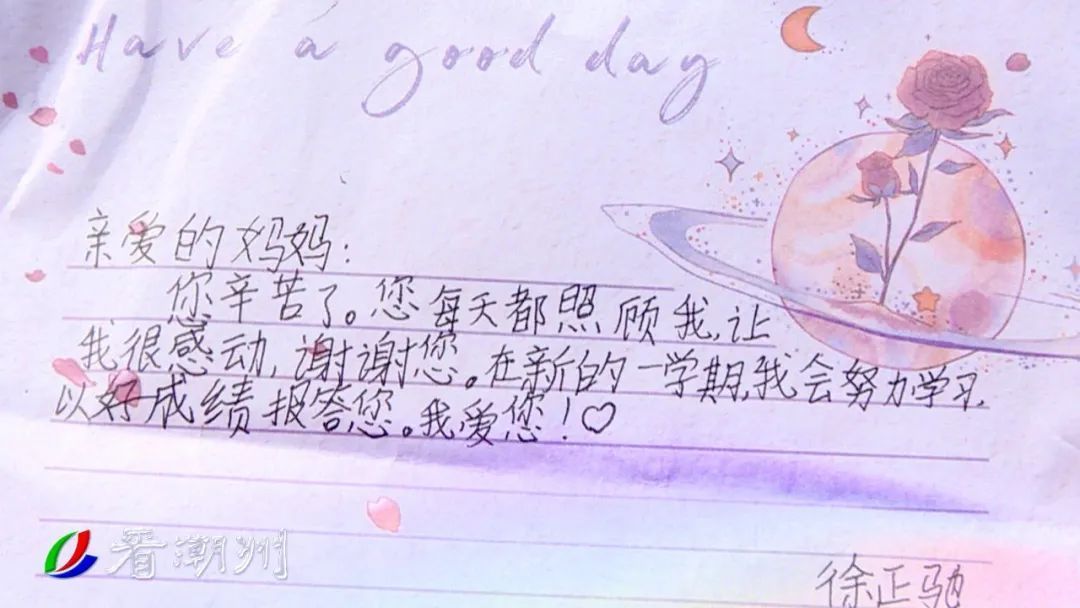 Have a good day
亲爱的妈妈:
您辛苦了。您每天都照顾我,让
我很感动,谢谢您。在新的一学期,我会努力学习,
以好成绩报答您。我爱您!♡
看潮州
徐正驰